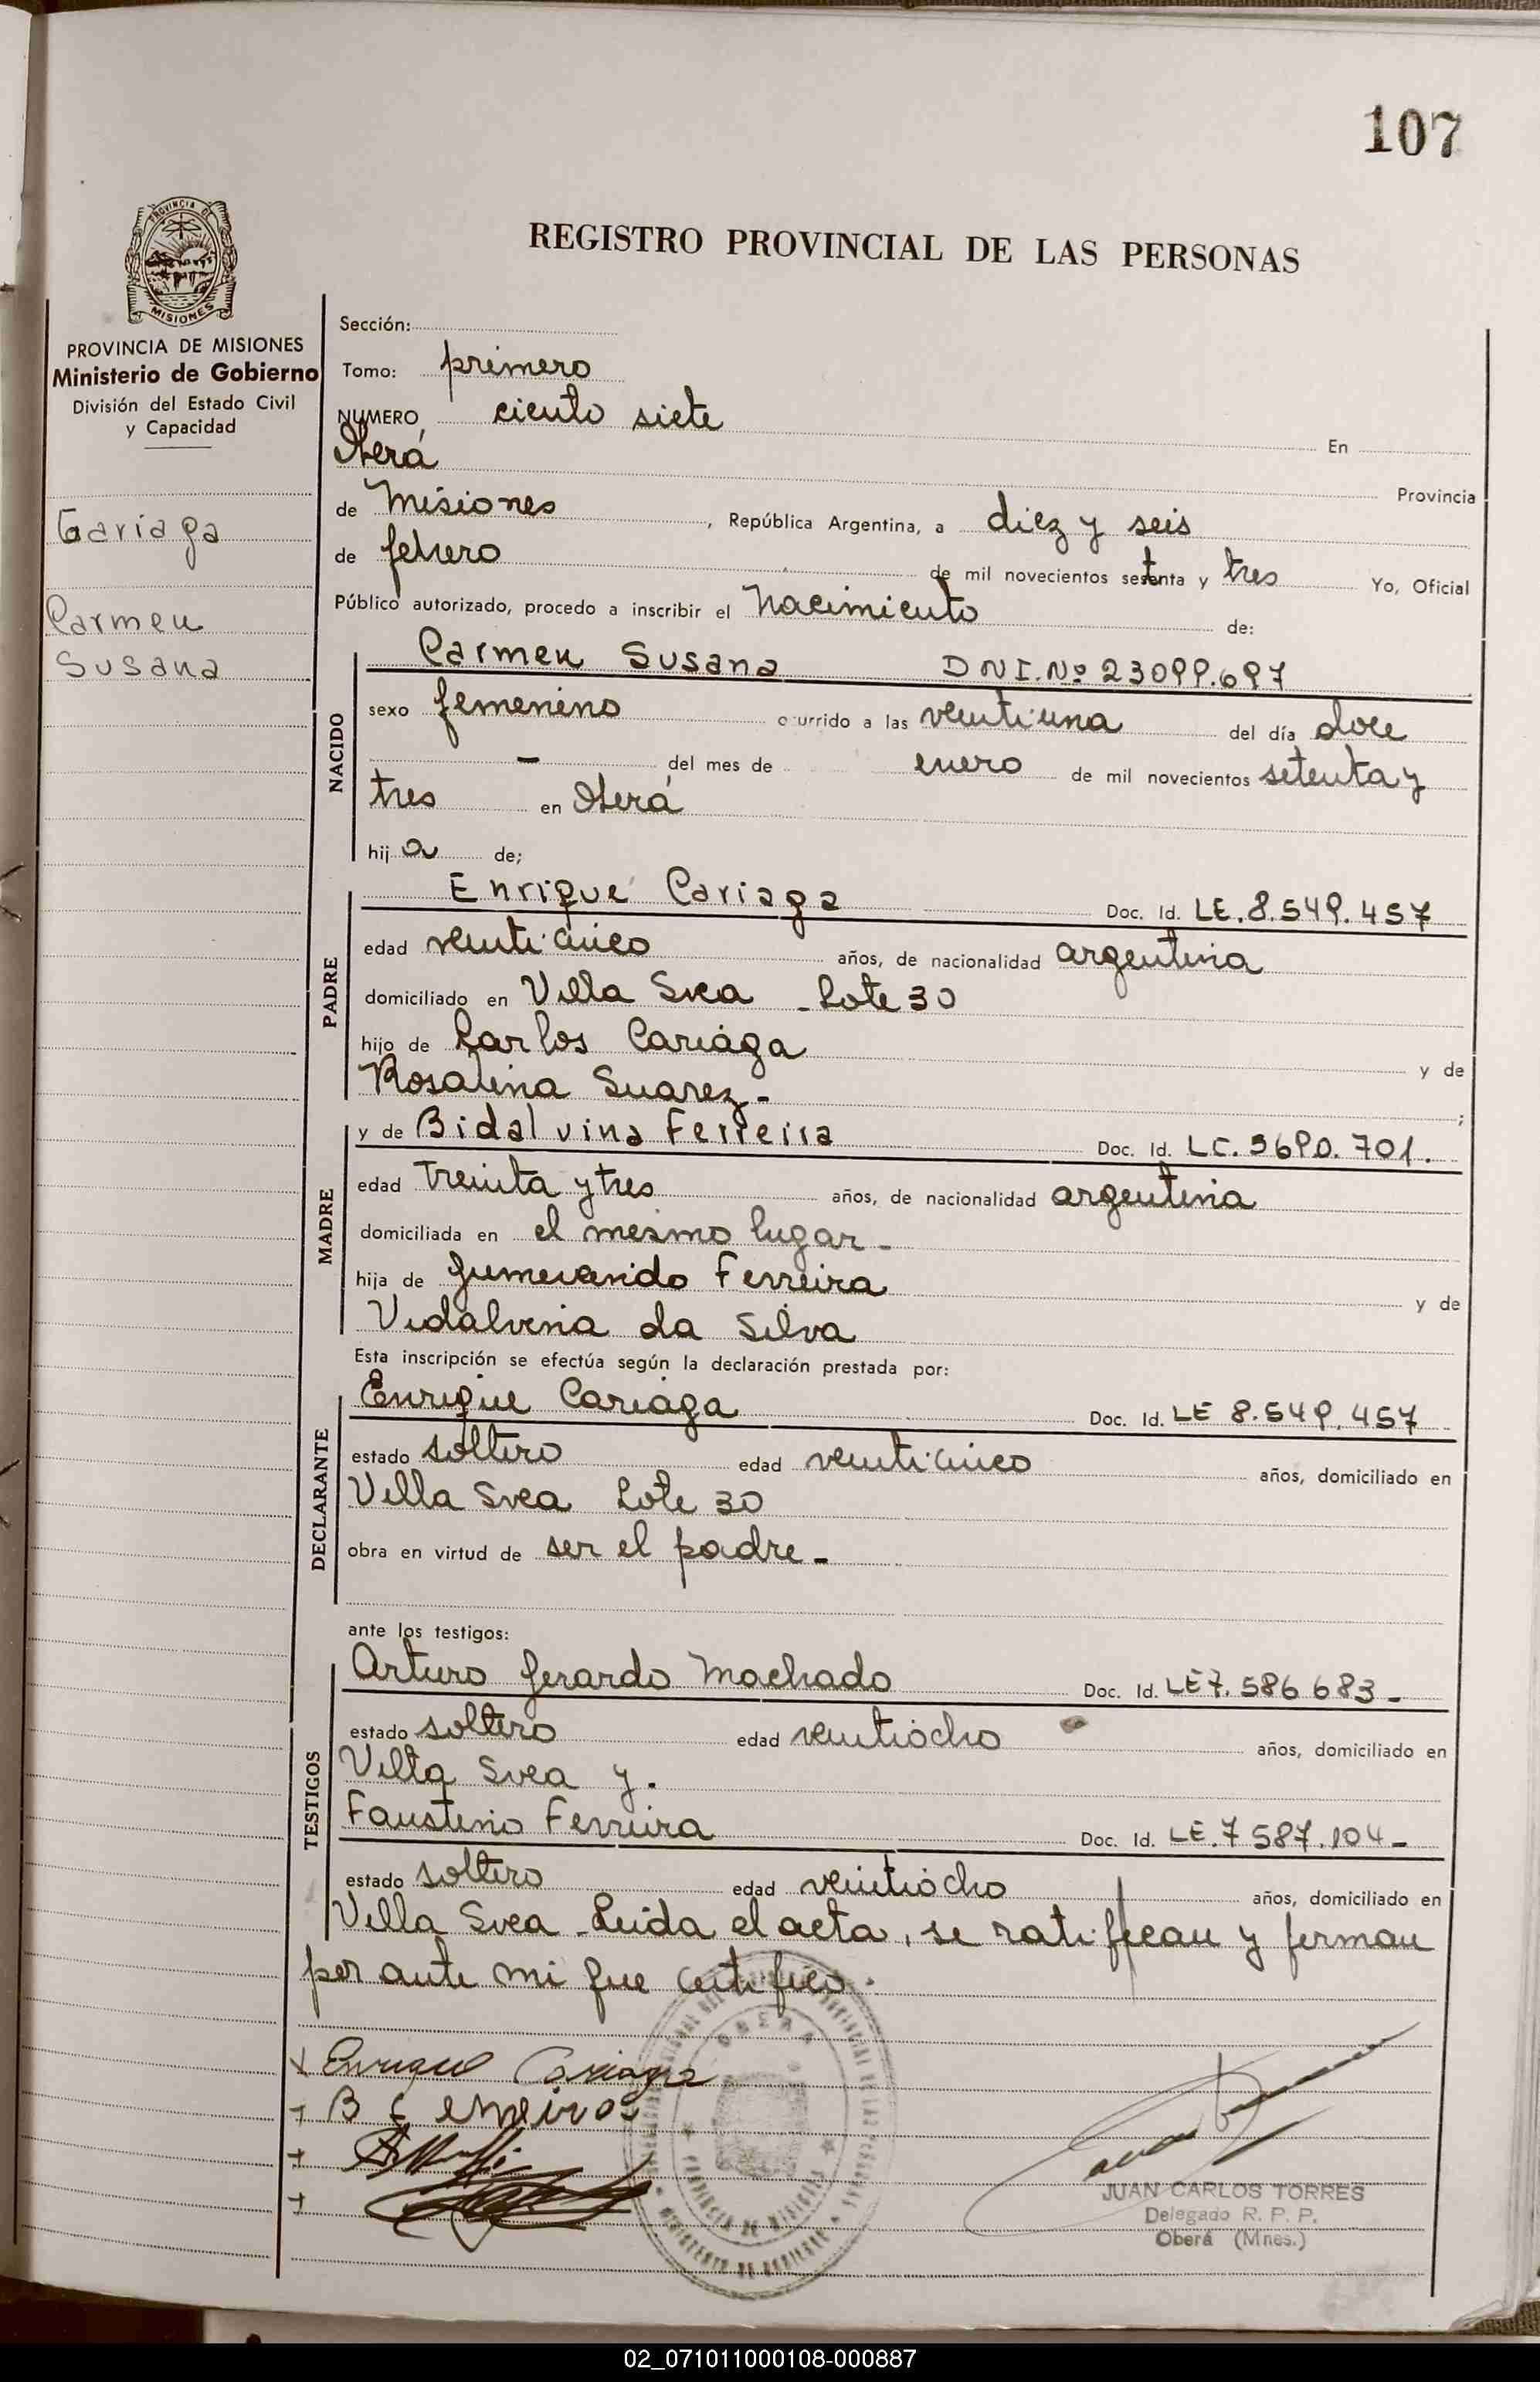 107
PROVINCIA DE
MISIONES
REGISTRO PROVINCIAL DE LAS PERSONAS
PROVINCIA DE MISIONES
Ministerio de Gobierno
División del Estado Civil
y Capacidad
Cariaga
Carmen
Susana
Sección:
Tomo: primero
NUMERO ciento siete En
Oberá Provincia
de Misiones, República Argentina, a diez y seis
de febrero de mil novecientos setenta y tres Yo, Oficial
Público autorizado, procedo a inscribir el Nacimiento de:
NACIDO
Carmen Susana DNI.Nº 23099.697
sexo femenino ocurrido a las veintiuna del día doce
- del mes de enero de mil novecientos setenta y
tres en Oberá
hija de;
PADRE
Enrique Cariaga Doc. Id. LE.8.549.457
edad veinticinco años, de nacionalidad argentina
domiciliado en Villa Svea - Lote 30
hijo de Carlos Cariaga y de
Rosalina Suarez - ;
MADRE
y de Bidalvina Ferreira Doc. Id. LC.3690.701.
edad treinta y tres años, de nacionalidad argentina
domiciliada en el mismo lugar -
hija de Gumercindo Ferreira y de
Vidalvina da Silva
Esta inscripción se efectúa según la declaración prestada por:
DECLARANTE
Enrique Cariaga Doc. Id. LE 8.549.457
estado soltero edad veinticinco años, domiciliado en
Villa Svea Lote 30
obra en virtud de ser el padre -
ante los testigos:
TESTIGOS
Arturo Gerardo Machado Doc. Id. LE7.586 683 -
estado soltero edad veintiocho años, domiciliado en
Villa Svea y.
Faustino Ferreira Doc. Id. LE.7 587.104 -
estado soltero edad veintiocho años, domiciliado en
Villa Svea - Leida el acta, se ratifican y firman
por ante mi que certifico.
Enrique Cariaga
OBERA
PROVINCIA DE MISIONES
MINISTERIO DE GOBIERNO
JUAN CARLOS TORRES
Delegado R. P. P.
Oberá (Mnes.)
02_071011000108-000887